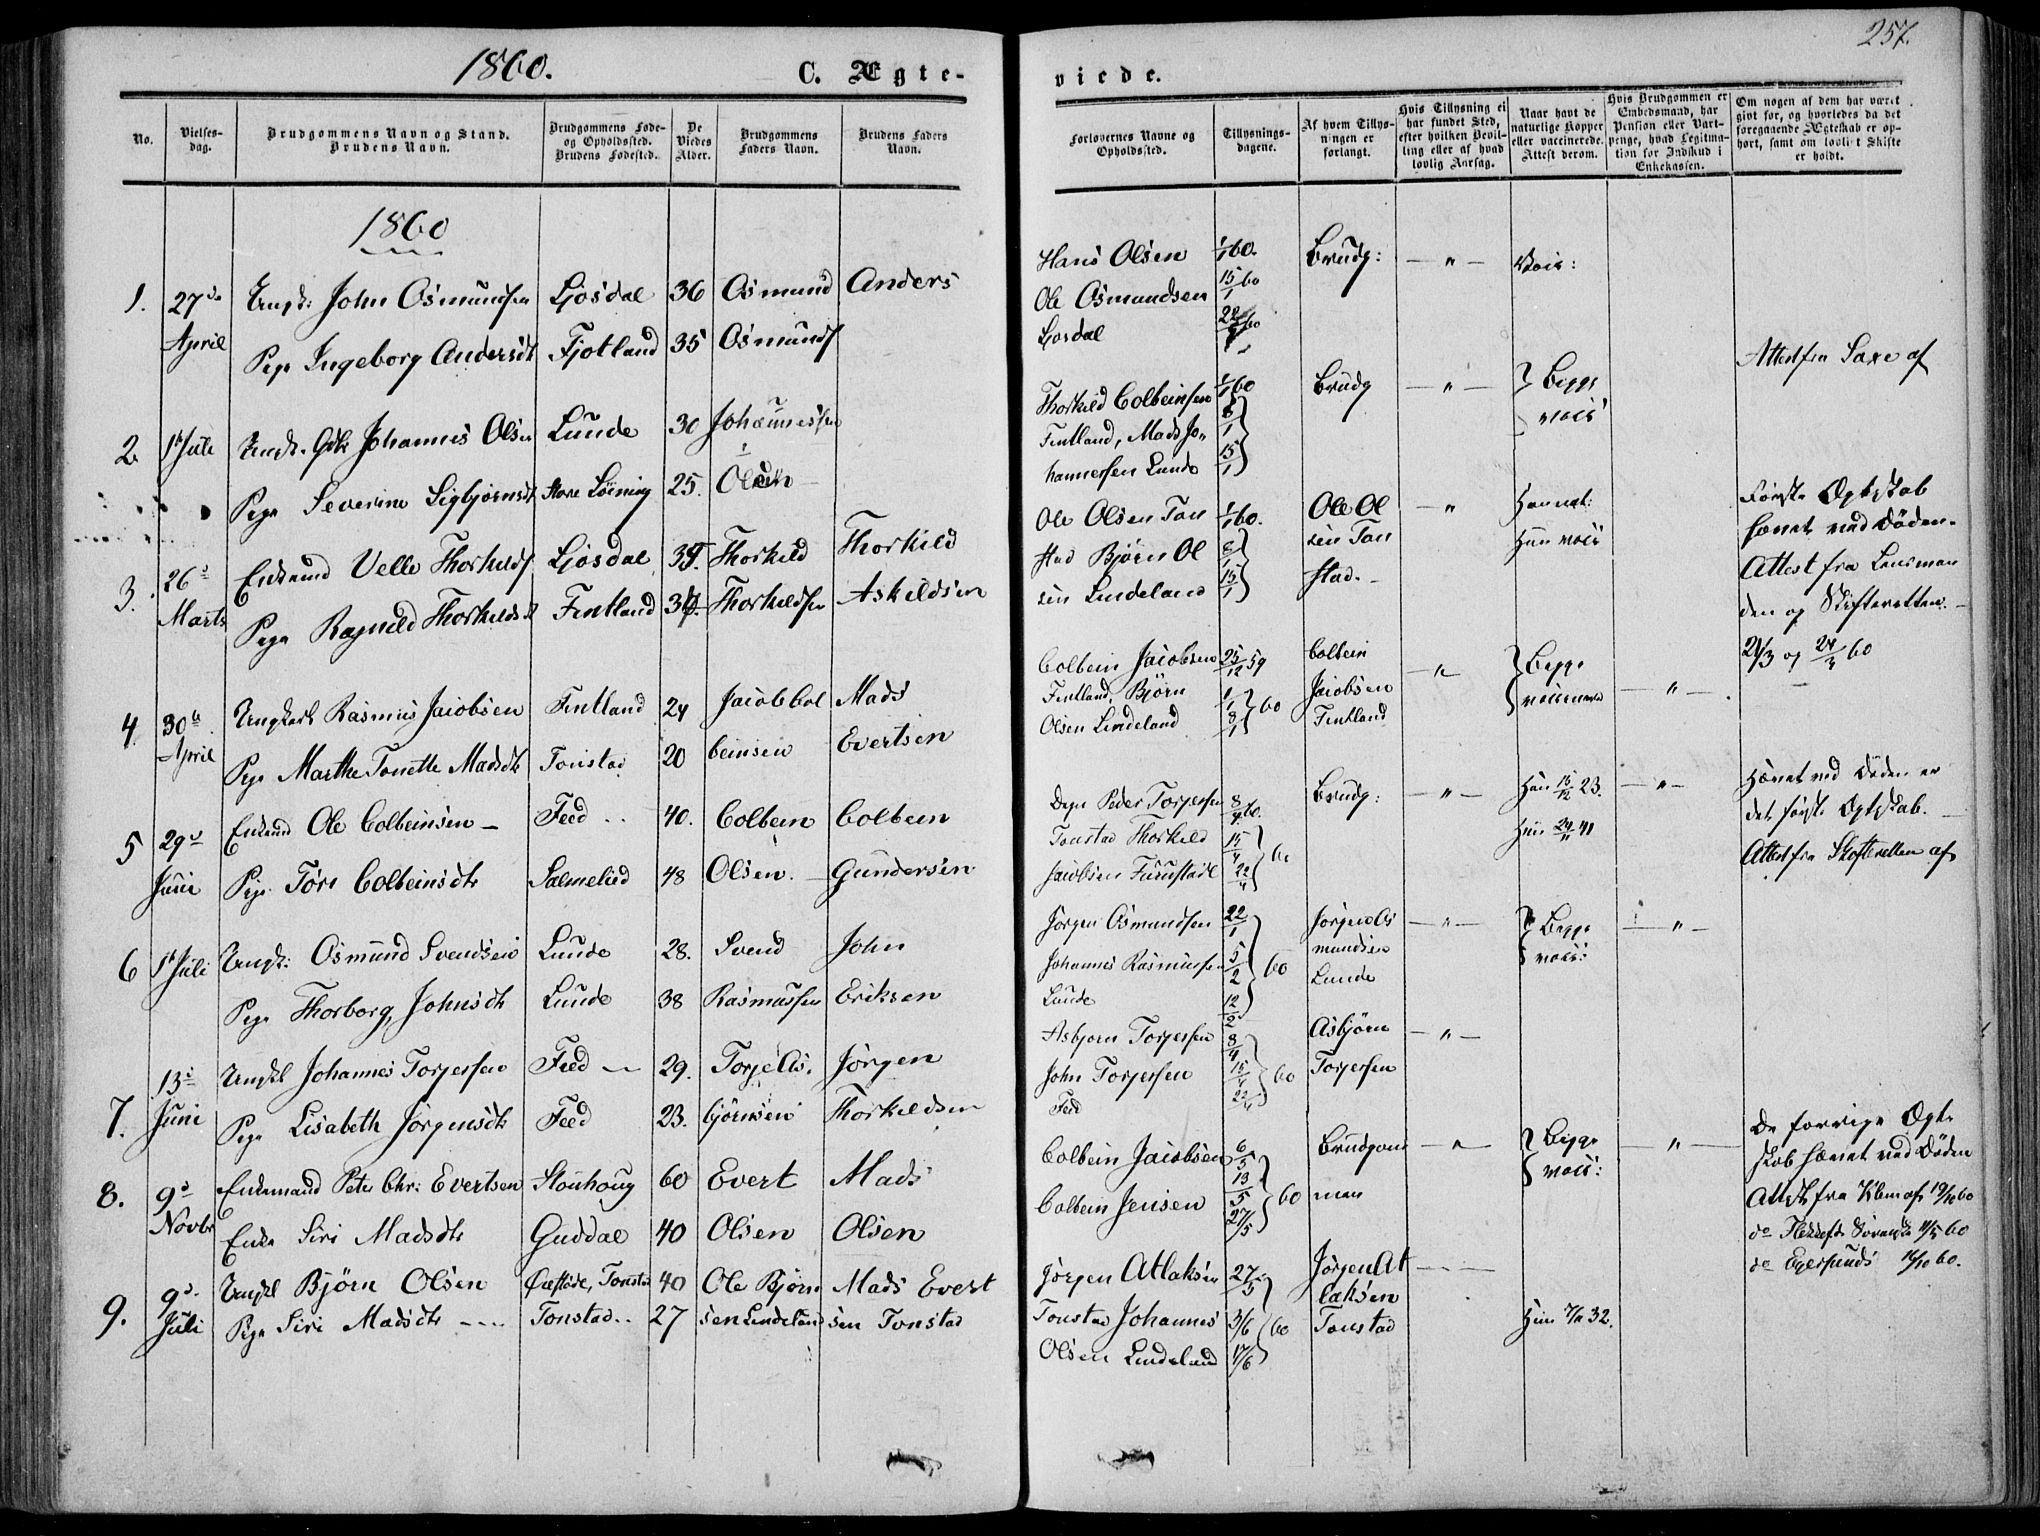 1860.
C. Ægte-
No.
Vielses-
dag.
Brudgommens Navn og Stand.
Brudens Navn.
Brudgommens Føde-
og Opholdssted.
Brudens Fødested.
De
Viedes
Alder.
Brudgommens
Faders Navn.
Brudens Faders
Navn.
1860
1. 27de Ungk: John Osmundsen Ljosdal 36 Osmund Anders
April Pige Ingeborg Andersdt Fjotland 35 Osmunds
2. 1st Juli Ungk. Johannes Olsen Lunde 30 Johannessen
Pige Severine Sigbjørnsdt Store 25. Olsen
3. 26de Enkemd Velle Thorkilds Ljosdal Thorkild Thorkild
Marts Pige Ragnild Thorkildsdt Fintland Thorkildsen Askildsen
4. 30te Ungkarl Rasmus Jacobsen Fintland 24 Jacob Col Mads
April Pige Marthe Tonette Madsdtr Tonstad 20 beinsen Evertsen
5 29de Enkemd Ole Colbeinsen – Feed .. 40. Colbein Colbein
Juni Pige Colbeinsdtr Salmelied 48 Olsen. – Gundersen
6 1st Juli Ungk: Osmund Svendsen Lunde 28. Svend John
Pige Thorborg Johnsdtr Lunde 38 Rasmussen Eriksen
7. 13de Ungkl Johannes Torjersen Feed – 29. Torje As. Jørgen
Juni Pige Lisabeth Jørgensdtr Feed 23. bjørnsen Thorkeldsen
8. 9de Enkemand Peter Chr: Evertsen Stouhoug 60 Evert Mads
Novbr Enke Siri Madsdtr Guddal 40 Olsen Olsen
9. 9de Ungkl Bjørn Olsen Tonstad 40 Ole Bjørn Mads Evert
Juli Pige Siri Madsdtr ---- Tonstad.. 27 sen Lindeland sen Tonstad
257.
viede.
Forlovernes Navne og
Opholdssted.
Tillysnings-
dagene.
Af hvem Tillys-
ningen er
forlangt.
Hvis Tillysning ei
har fundet Sted,
efter hvilken Bevil-
ling eller af hvad
lovlig Aarsag.
Naar havt de
naturlige Kopper
eller vaccinerede.
Attest derom.
Hvis Brudgommen er
Embedsmand, har
Pension eller Vart-
penge, hvad Legitima-
tion for Indskud i
Enkekassen.
Om nogen af dem har været
givt før, og hvorledes da det
foregaaende Ægteskab er op-
hørt, samt om lovligt Skifte
er holdt.
Hans Olsen 1/1 60. Brudg: – „ – vacc:
Ole Osmundsen 15/1 60
Ljosdal 22/1 60
Attest fra Saxe af
Thorkild Colbeinsen 1/1 60 Brudg – „ – } Begge
Fintland, Mads Jo- 8/1 vacc
hannessen Lunde 15/1
Ole Olsen Ton 1/1 60. Ole Ol – „ Han nat: Første Egteskab
stad Bjørn Ol 8/1 sen Ton Hun vacc hævet ved Døden.
sen Lindeland 15/1 stad. – Attest fra Lensman
den og Skifteretten. –
21/3 og 24/3 60
Colbein Jacobsen 25/12 59 Colbein – „ } Begge
Fintland, Bjørn 1/1 } 60 Jacobsen – „ – .
Olsen Lindeland 8/1 Fintland
Peder Torjersen 8/4 60. Brudg: – „ – Han 15/12 23. – „ – Hævet ved Døden er
Tonstad Thorkild 15/4 } 60 Hun 24/11 41 det første Egteskab. –
Jacobsen 22/4 Attest fra Skifteretten af
Jørgen Osmundsen 22/1 Jørgen Os – „ – } Begge – „ –
Johannes Rasmussen 5/2 } 60 mundsen vacc:
Lunde 12/2 Lunde
Asbjørn Torjersen 8/4 Asbjørn – „ –
John Torjersen 15/4 } 60 Torjersen
Feed 22/4
Colbein Jacobsen 6/5 Brudgom – „ – } Begge – „ – De forrige Egte
Colbein Jensen 13/5 } 60 man vacc: skab hævet ved Døden
27/5 Attest fra 19/10 60
do 11/5 60
do Egersund 14/10 60.
Jørgen Atlaksen 27/5 Jørgen At – – –
Tonstad Johannes 3/6 } 60 laksen Hun 7/11 32.
Olsen Lindeland 17/6 Tonstad